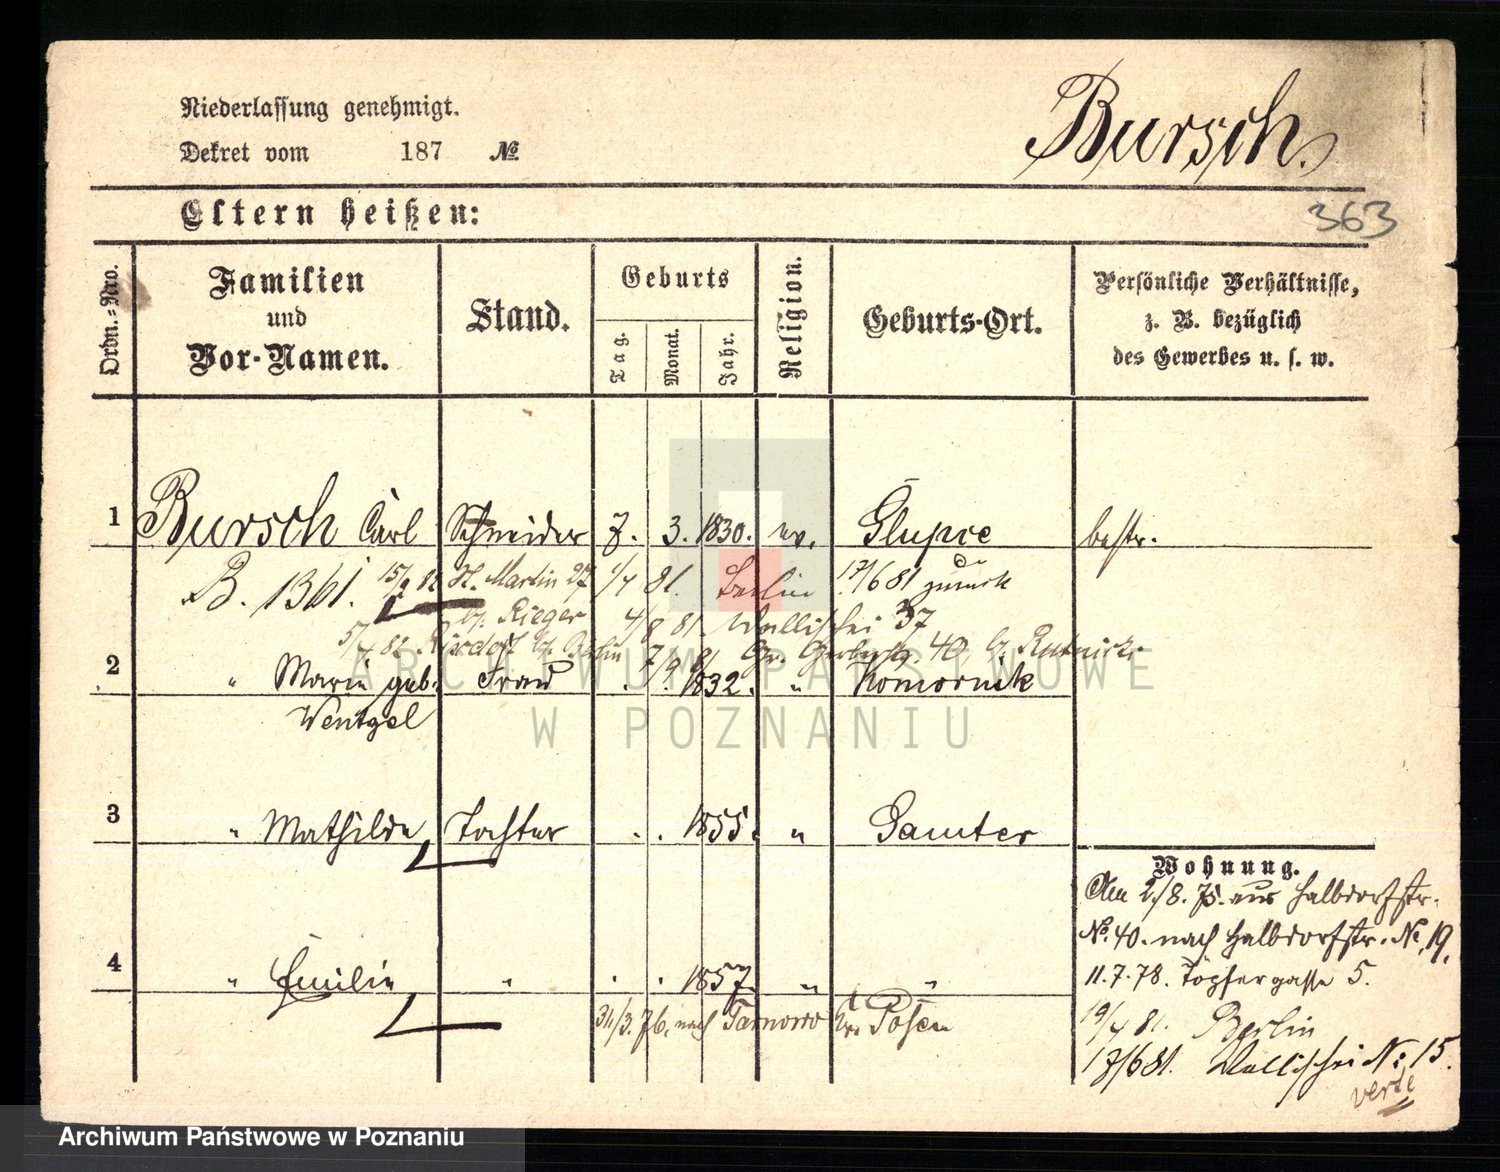 Niederlassung genehmigt.
Bursch.
Dekret vom 187 №
Eltern heißen:
363
Ordn.=Nro.
Familien und Vor-Namen.
Stand.
Geburts
Tag.
Monat.
Jahr.
Religion.
Geburts-Ort.
Persönliche Verhältnisse,
z. B. bezüglich
des Gewerbes u. s. w.
1 Bursch Carl Schneider 7. 3. 1830. ev. Glupce bestr.
B. 1361. St. Martin 27 81. Berlin 17/6 81 zurück
b. Rieger 4/8 81 Wallischei 37
Rixdorf b. Berlin 7/9 81 Gr. Gerberstr. 40, b.
2 " Marie geb. Frau . . 1832. " Komornik
Wentzel
3 " Mathilde Tochter . . 1855. " Samter
Wohnung.
Am 2/8. 75. aus Halbdorfstr.
No. 40. nach Halbdorfstr. No. 19.
4 " Emilie " . . 1857. " "
11.7.78. Töpfergasse 5.
31/3. 76. nach Tarnowo Kr. Posen
19/4 81. Berlin
17/6 81. Wallischei No: 15.
verte
ARCHIWUM PAŃSTWOWE
W POZNANIU
Archiwum Państwowe w Poznaniu